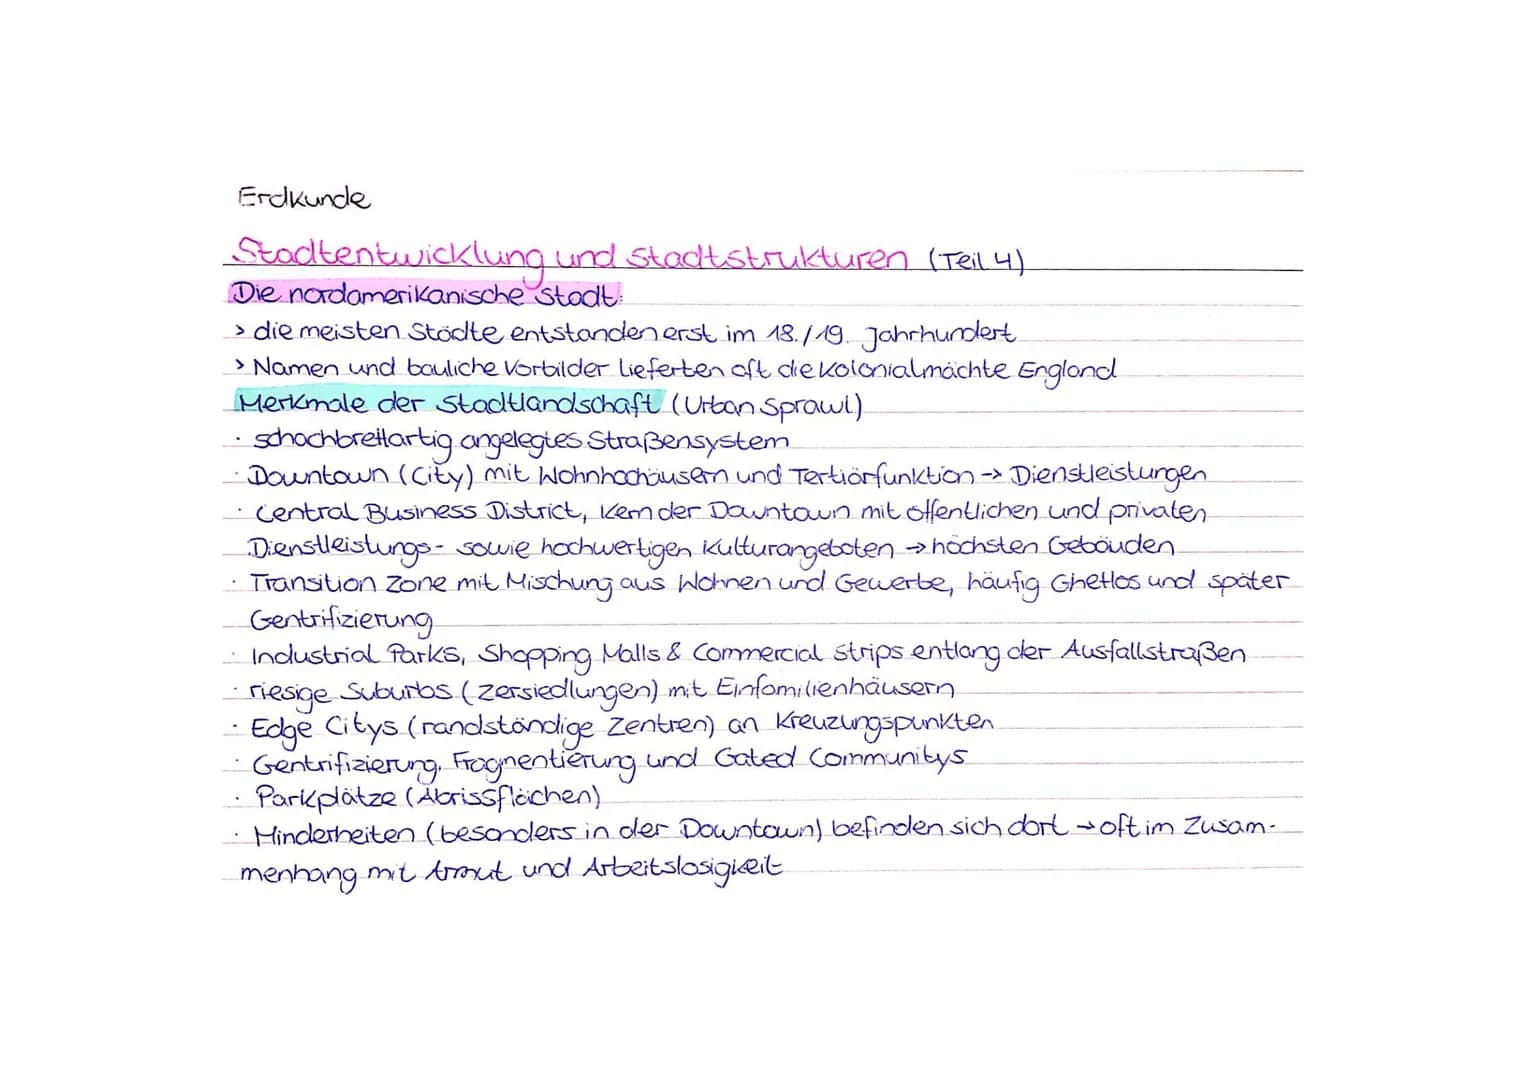 Erdkunde
Stadtentwicklung und Stadtstrukturen (Teil 4)
Die nordamerikanische Stadt:
> die meisten Städte entstanden erst im 18./19. Jahrhundert
> Namen und bauliche Vorbilder lieferten oft die Kolonialmächte England
Merkmale der Stadtlandschaft (Urban Sprawl)
· schachbrettartig angelegtes Straßensystem
· Downtown (City) mit Wohnhochäusern und Tertiärfunktion -> Dienstleistungen
· Central Business District, Kern der Downtown mit öffentlichen und privaten
Dienstleistungs- sowie hochwertigen Kulturangeboten → höchsten Gebäuden
· Transition Zone mit Mischung aus Wohnen und Gewerbe, häufig Ghettos und später
Gentrifizierung
· Industrial Parks, Shopping Malls & Commercial strips entlang der Ausfallstraßen
· riesige Suburbs (Zersiedlungen) mit Einfamilienhäusern
· Edge Citys (randständige Zentren) an Kreuzungspunkten
· Gentrifizierung, Fragmentierung und Gated Communitys
· Parkplätze (Abrissflächen)
· Minderheiten (besonders in der Downtown) befinden sich dort → oft im Zusam-
menhang mit Armut und Arbeitslosigkeit